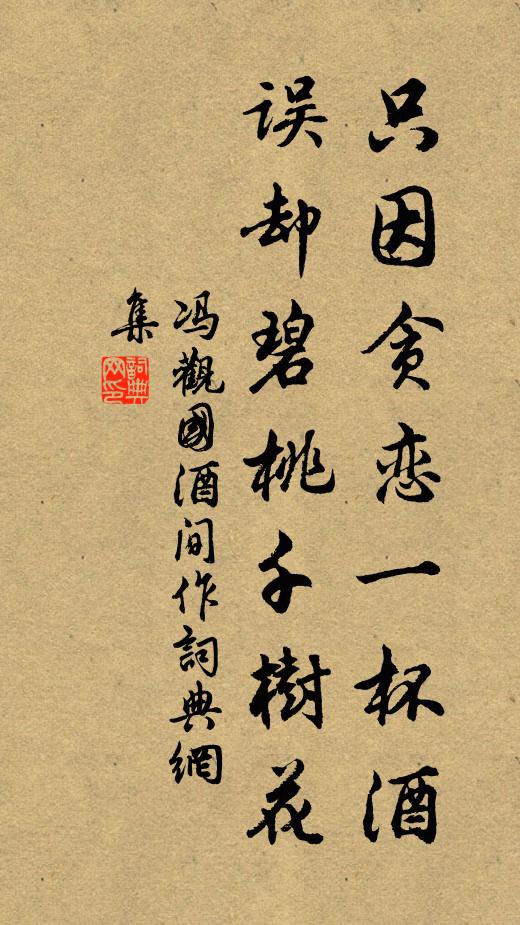 只因贪恋一杯酒
误却碧桃千樹花
冯觀國酒间作詞典網
集
詞典网印